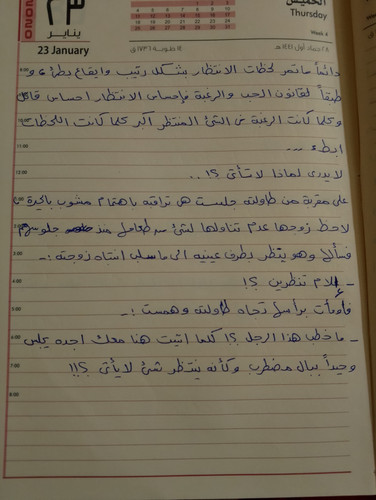 2020
٢٣
يناير
23 January
الخميس
Thursday
Week 4
دائماً ما تمر لحظات الانتظار بشكل رتيب وايقاع بطئ و
طبقاً لقانون الحب والرغبة فإحساس الانتظار احساس قاتل
وكلما كانت الرغبة في الشئ المنتظر أكبر كلما كانت اللحظات
ابطء ...
لا يدرى لماذا لا تأتى ؟! ..
على مقربة من طاولته جلست هى تراقبه باهتمام مشوب بالحيرة
لاحظ زوجها عدم تناولها لشئ من طعامها منذ جلوسهم
فسألها وهو ينظر بطرف عينيه الى ما سلب انتباه زوجته :-
- إلام تنظرين ؟!
فأومأت برأسها تجاه طاولته وهمست :-
- ما خطب هذا الرجل ؟! كلما اتيت هنا معك اجده يجلس
وحيداً ببال مضطرب وكأنه ينتظر شئ لا يأتى ؟!!
9:00
10:00
11:00
12:00
3:00
4:00
5:00
6:00
7:00
8:00